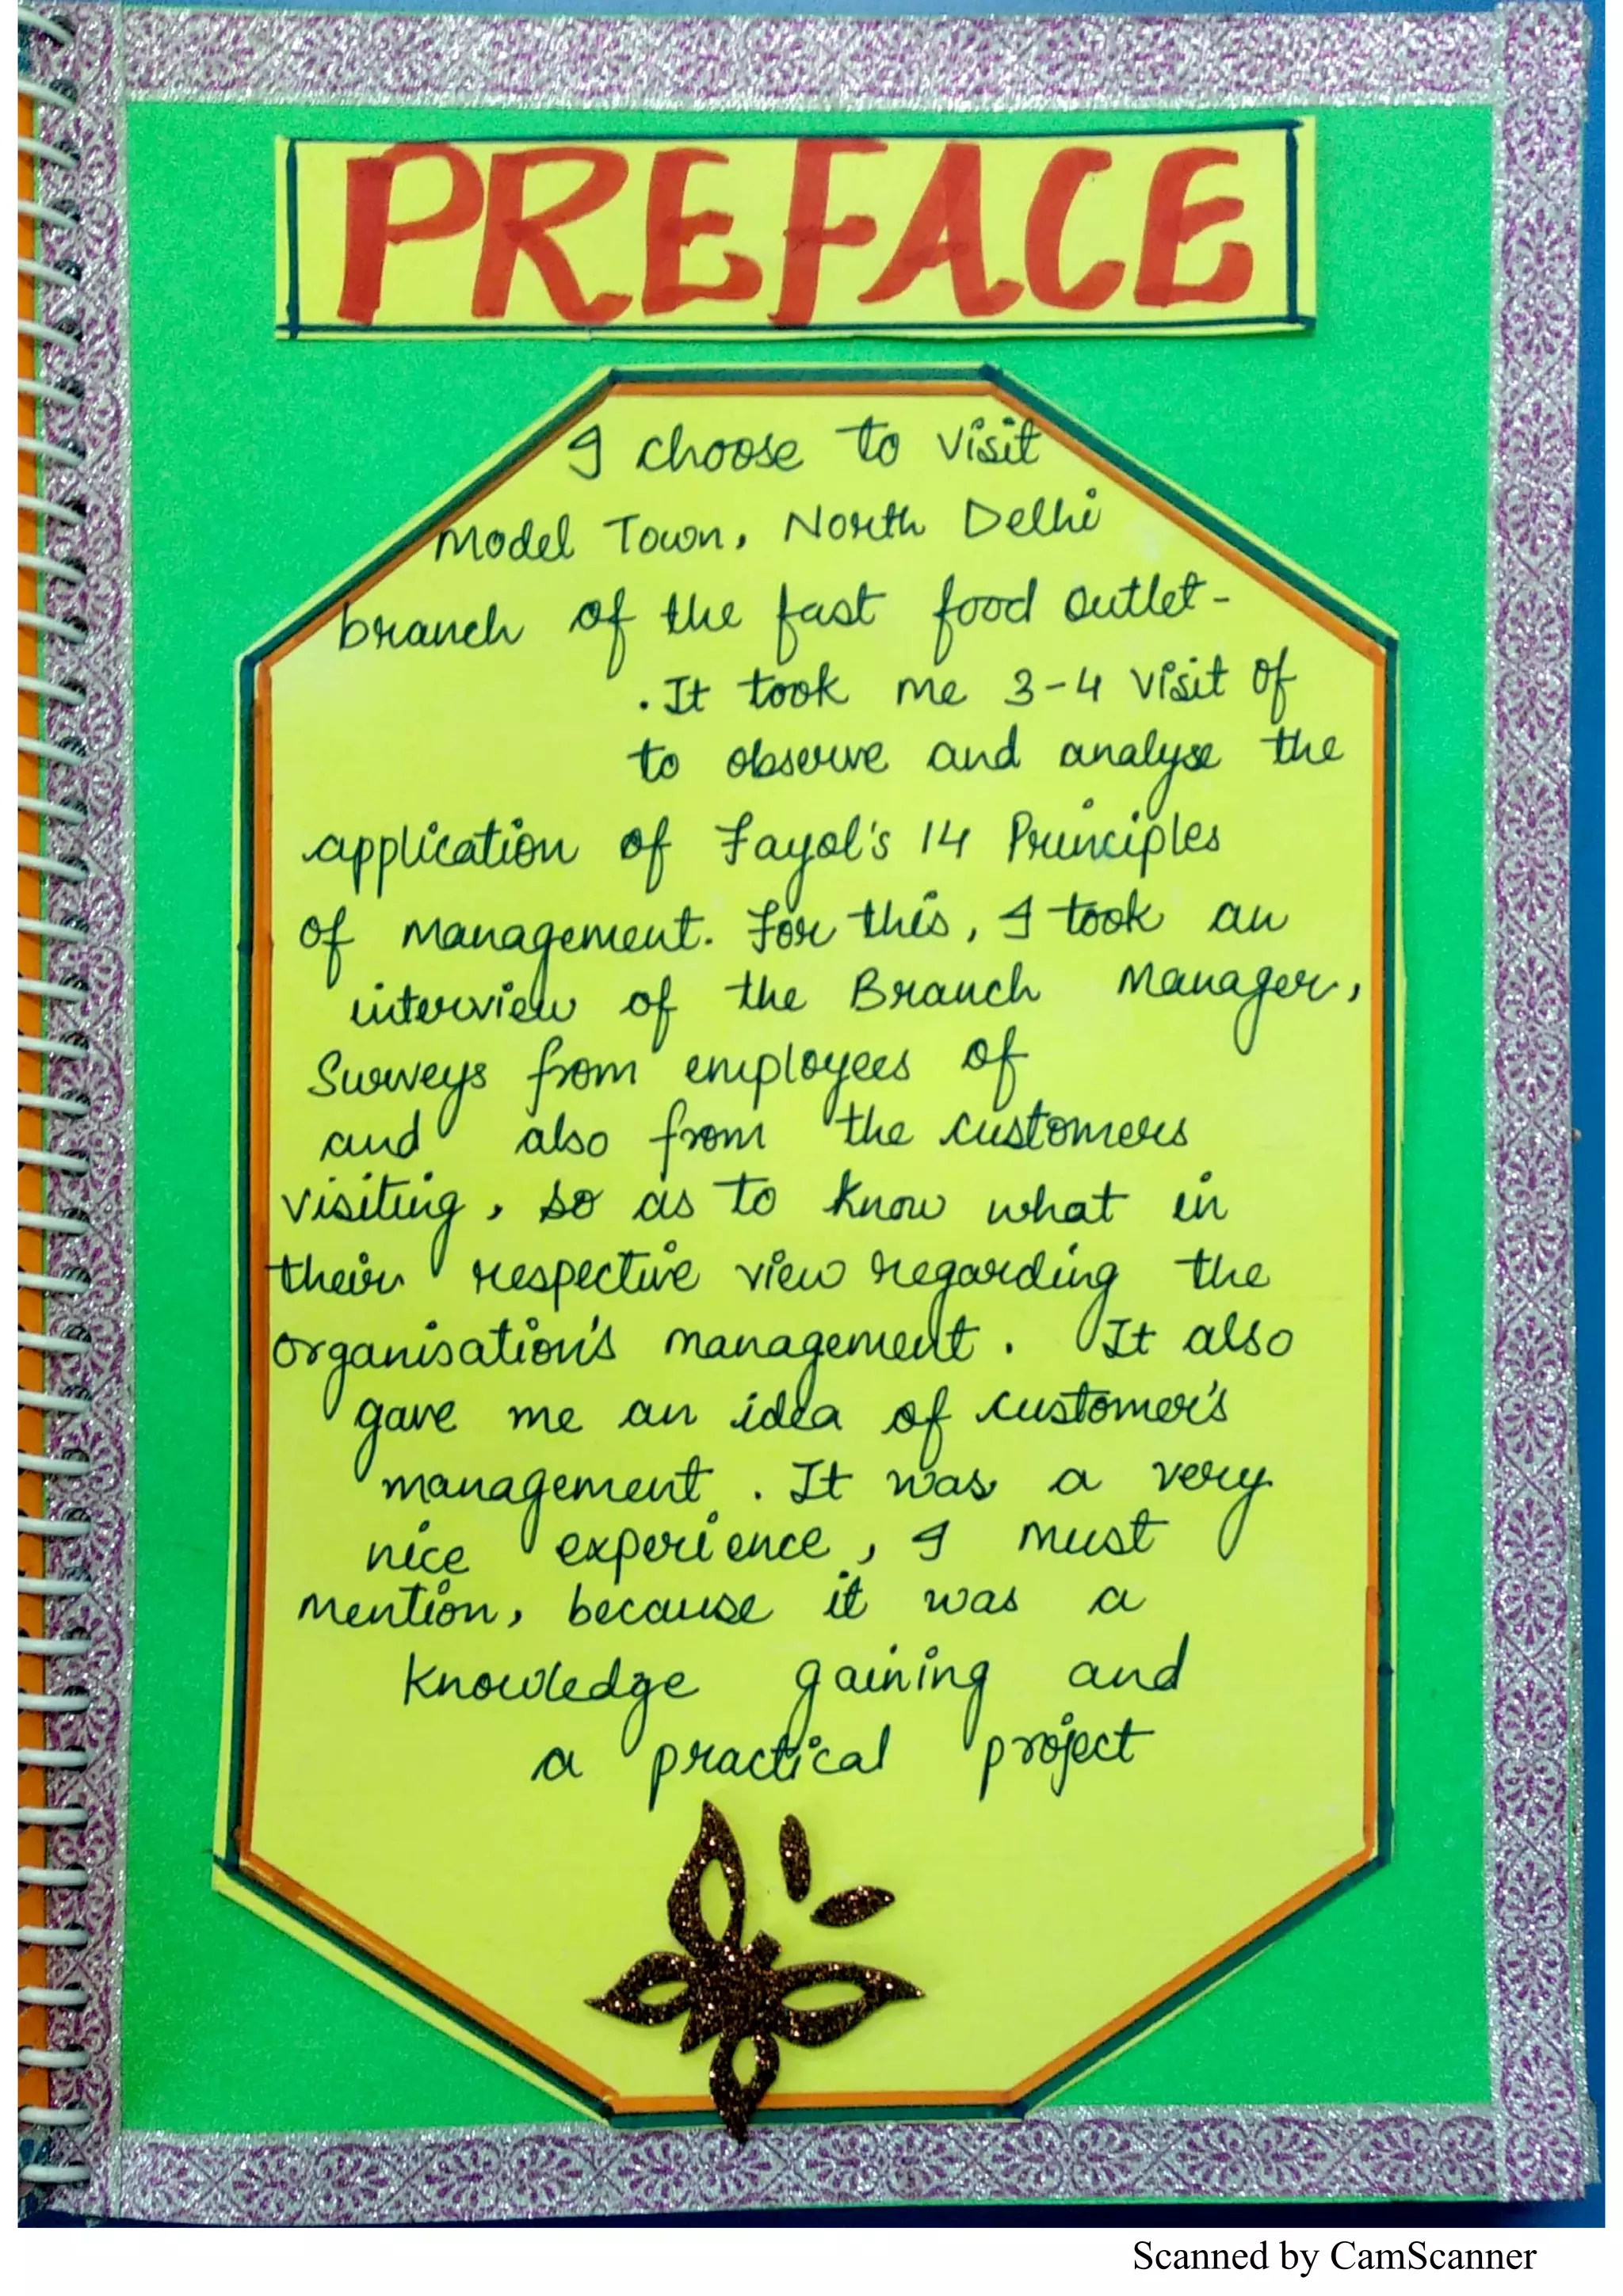 PREFACE
I choose to visit
Model Town, North Delhi
branch of the fast food outlet-
. It took me 3-4 visit of
to observe and analyse the
application of Fayol's 14 Principles
of management. For this, I took an
interview of the Branch Manager,
Surveys from employees of
and also from the customers
visiting, so as to know what in
their respective view regarding the
organisation's management. It also
gave me an idea of customer's
management. It was a very
nice experience, I must
mention, because it was a
knowledge gaining and
a practical project
Scanned by CamScanner